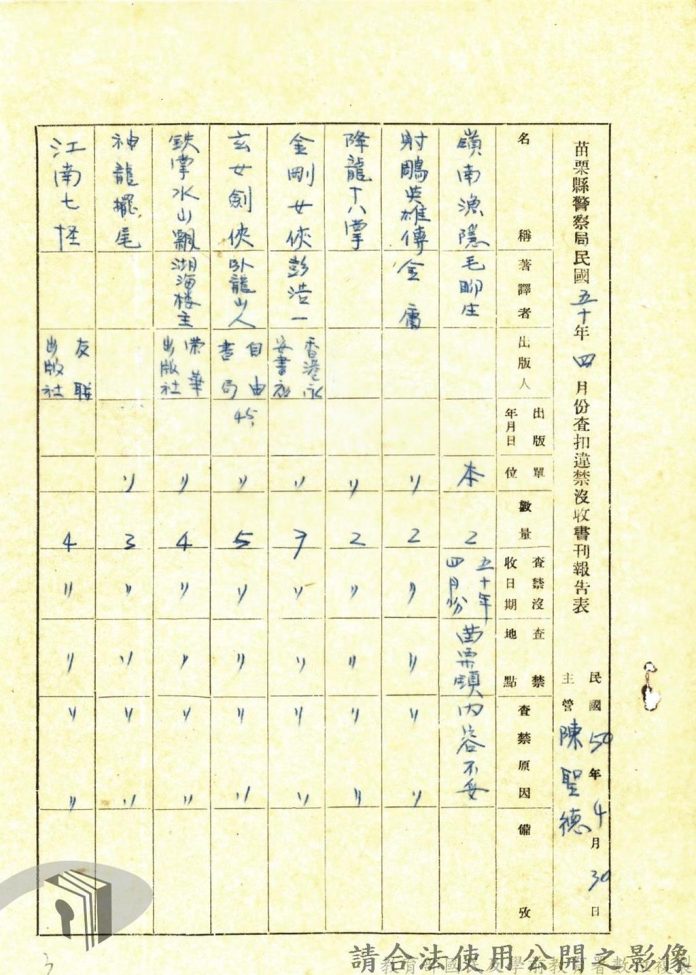 苗栗縣警察局民國五十年四月份查扣違禁沒收書刊報告表
民國50年4月30日
主管 陳聖德
名稱 著譯者 出版人 出版年月日 單位 數量 查禁沒收日期 查禁地點 查禁原因 備攷
嶺南漁隱 毛聊生 本 2 五十年四月份 苗栗鎮 內容不妥
射鵰英雄傳 金庸 〃 2 〃 〃 〃 〃
降龍十八掌 〃 2 〃 〃 〃 〃
金剛女俠 彭浩一 香港永安書局 〃 7 〃 〃 〃 〃
玄女劍俠 臥龍山人 自由書局 45 〃 5 〃 〃 〃 〃
鉄掌水山飄 湖海楼主 榮華出版社 〃 4 〃 〃 〃 〃
神龍擺尾 〃 3 〃 〃 〃 〃
江南七怪 友联出版社 4 〃 〃 〃 〃
3
請合法使用公開之影像